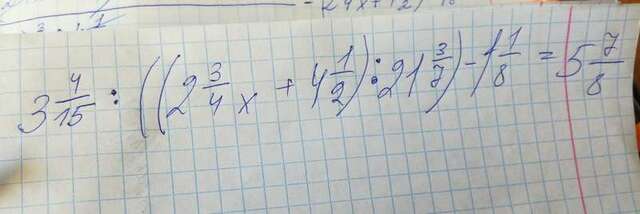 3 4/15 : ((2 3/4 x + 4 1/2) : 21 3/7) - 1 1/8 = 5 7/8